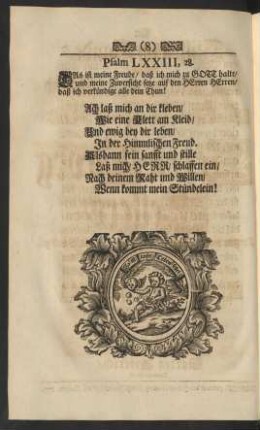 (8)
Psalm LXXIII, 28.
DAs ist meine Freude/ daß ich mich zu GOTT halte/
und meine Zuversicht setze auf den HErren HErren/
daß ich verkündige alle dein Thun!
Ach laß mich an dir kleben/
Wie eine Klett am Kleid/
Und ewig bey dir leben/
In der Himmlischen Freud.
Alsdann fein sanfft und stille
Laß mich/ HERR/ schlaffen ein/
Nach deinem Raht und Willen/
Wenn kommt mein Stündelein!